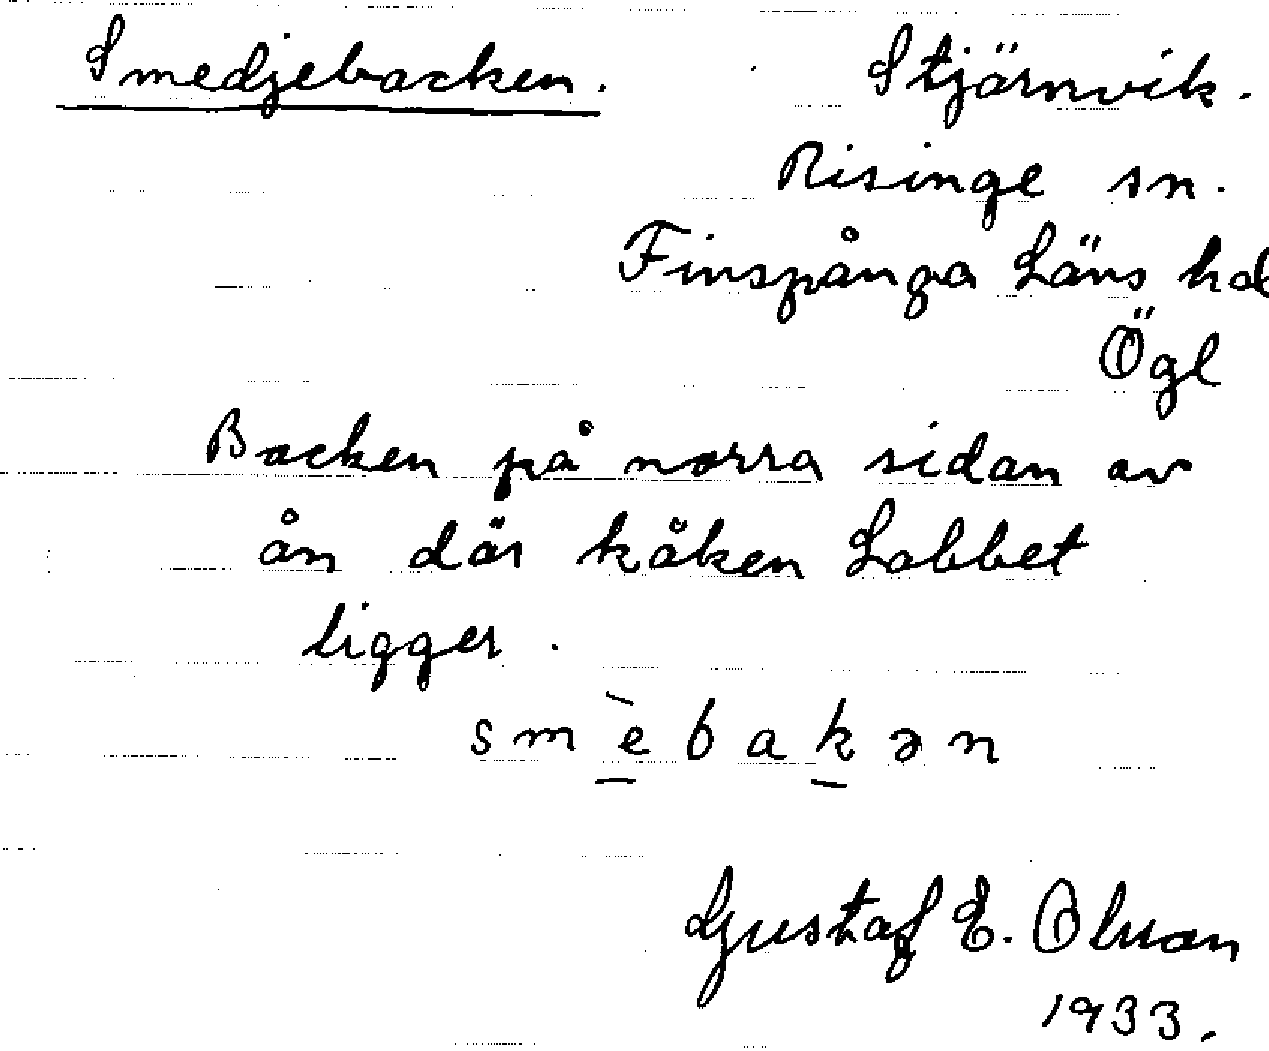 Smedjebacken.
Stjärnvik.
Risinge sn.
Finspånga Läns hd
Ögl
Backen på norra sidan av
ån där kåken Labbet
ligger.
smèbakən
Gustaf E. Olsson
1933.